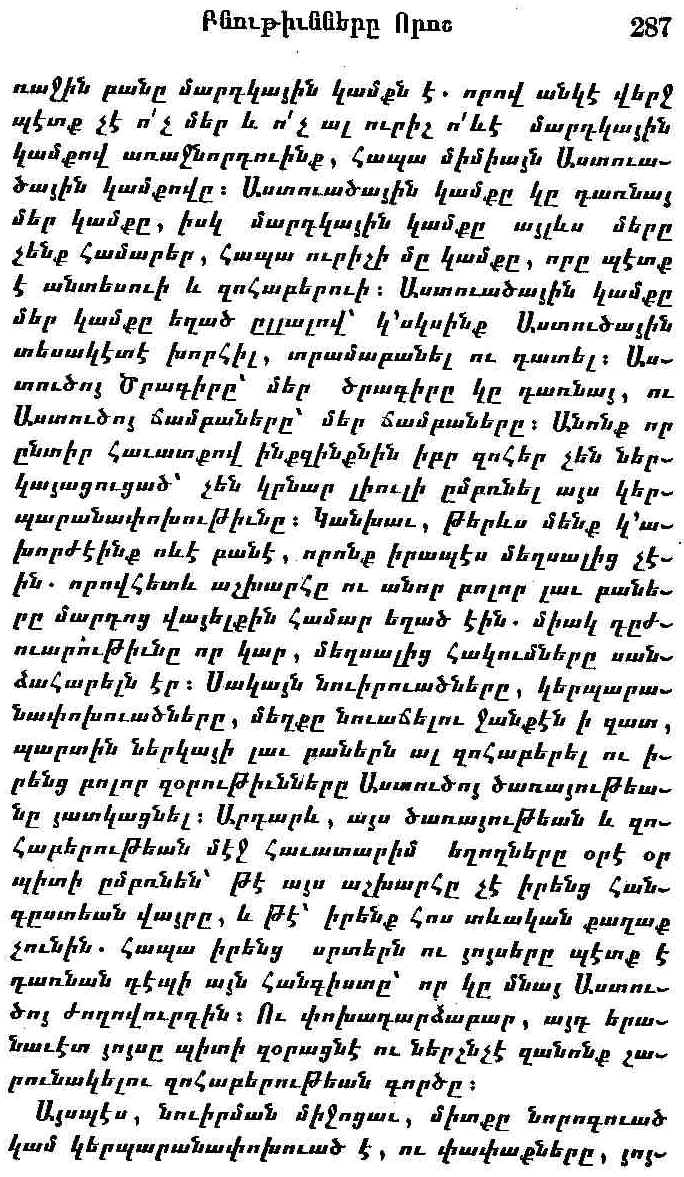 Բնութիւնները Որոշ 287
ռաջին բանը մարդկային կամքն է. որով անկէ վերջ
պէտք չէ ո՛չ մեր և ո՛չ ալ ուրիշ ո՛ևէ մարդկային
կամքով առաջնորդուինք, հապա միմիայն Աստուա-
ծային կամքովը։ Աստուածային կամքը կը դառնայ
մեր կամքը, իսկ մարդկային կամքը այլևս մերը
չենք համարեր, հապա ուրիշի մը կամքը, որը պէտք
է անտեսուի և զոհաբերուի։ Աստուածային կամքը
մեր կամքը եղած ըլլալով՝ կ՚սկսինք Աստուծային
տեսակէտէ խորհիլ, տրամաբանել ու դատել։ Աս-
տուծոյ Ծրագիրը՝ մեր ծրագիրը կը դառնայ, ու
Աստուծոյ ճամբաները՝ մեր ճամբաները։ Անոնք որ
ընտիր հաւատքով ինքզինքնին իբր զոհեր չեն ներ-
կայացուցած՝ չեն կրնար լիուլի ըմբռնել այս կեր-
պարանափոխութիւնը։ Կանխաւ, թերևս մենք կ՚ա-
խորժէինք ոևէ բանէ, որոնք իրապէս մեղսալից չէ-
ին. որովհետև աշխարհը ու անոր բոլոր լաւ բանե-
րը մարդոց վայելքին համար եղած էին. միակ դըժ-
ուարութիւնը որ կար, մեղսալից հակումները սան-
ձահարելն էր։ Սակայն նուիրուածները, կերպարա-
նափոխուածները, մեղքը նուաճելու ջանքէն ի զատ,
պարտին ներկայի լաւ բաներն ալ զոհաբերել ու ի-
րենց բոլոր զօրութիւնները Աստուծոյ ծառայութեա-
նը յատկացնել։ Արդարև, այս ծառայութեան և զո-
հաբերութեան մէջ հաւատարիմ եղողները օրէ օր
պիտի ըմբռնեն՝ թէ այս աշխարհը չէ իրենց հան-
գըստեան վայրը, և թէ՝ իրենք հոս տևական քաղաք
չունին. հապա իրենց սրտերն ու յոյսերը պէտք է
դառնան դէպի այն հանգիստը՝ որ կը մնայ Աստու-
ծոյ ժողովուրդին։ Ու փոխադարձաբար, այդ երա-
նաւէտ յոյսը պիտի զօրացնէ ու ներշնչէ զանոնք շա-
րունակելու զոհաբերութեան գործը։
Այսպէս, նուիրման միջոցաւ, միտքը նորոգուած
կամ կերպարանափոխուած է, ու փափաքները, յոյ-